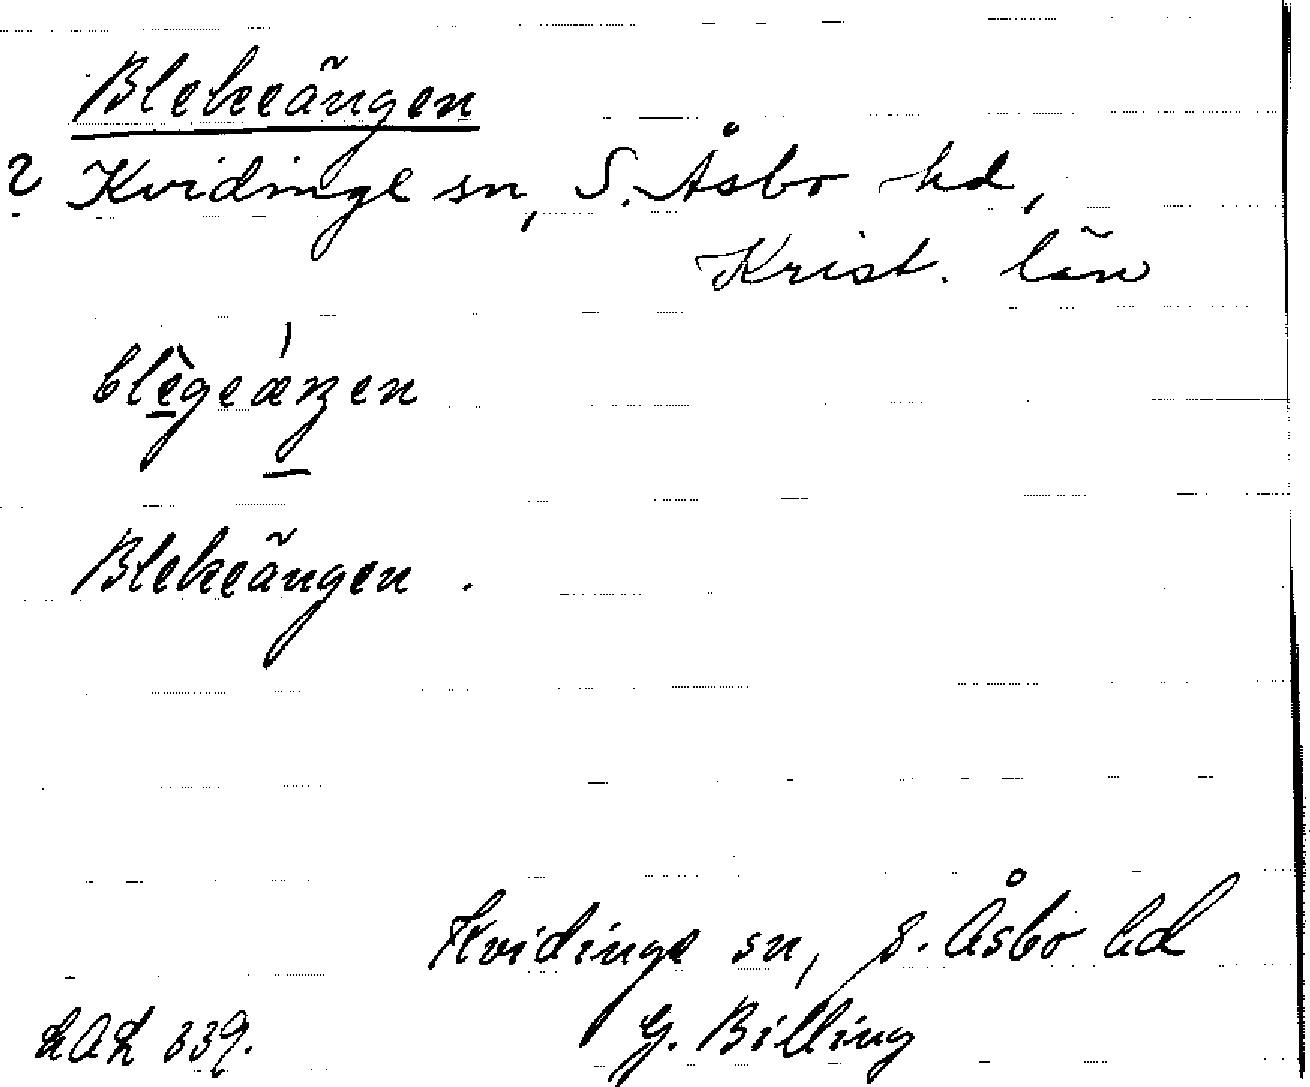 Blekeängen
? Kvidinge sn, S. Åsbo hd,
Krist. län
blègeæ̀ŋen
Blekeängen.
Kvidinge sn, S. Åsbo hd
LAL 339. G. Billing